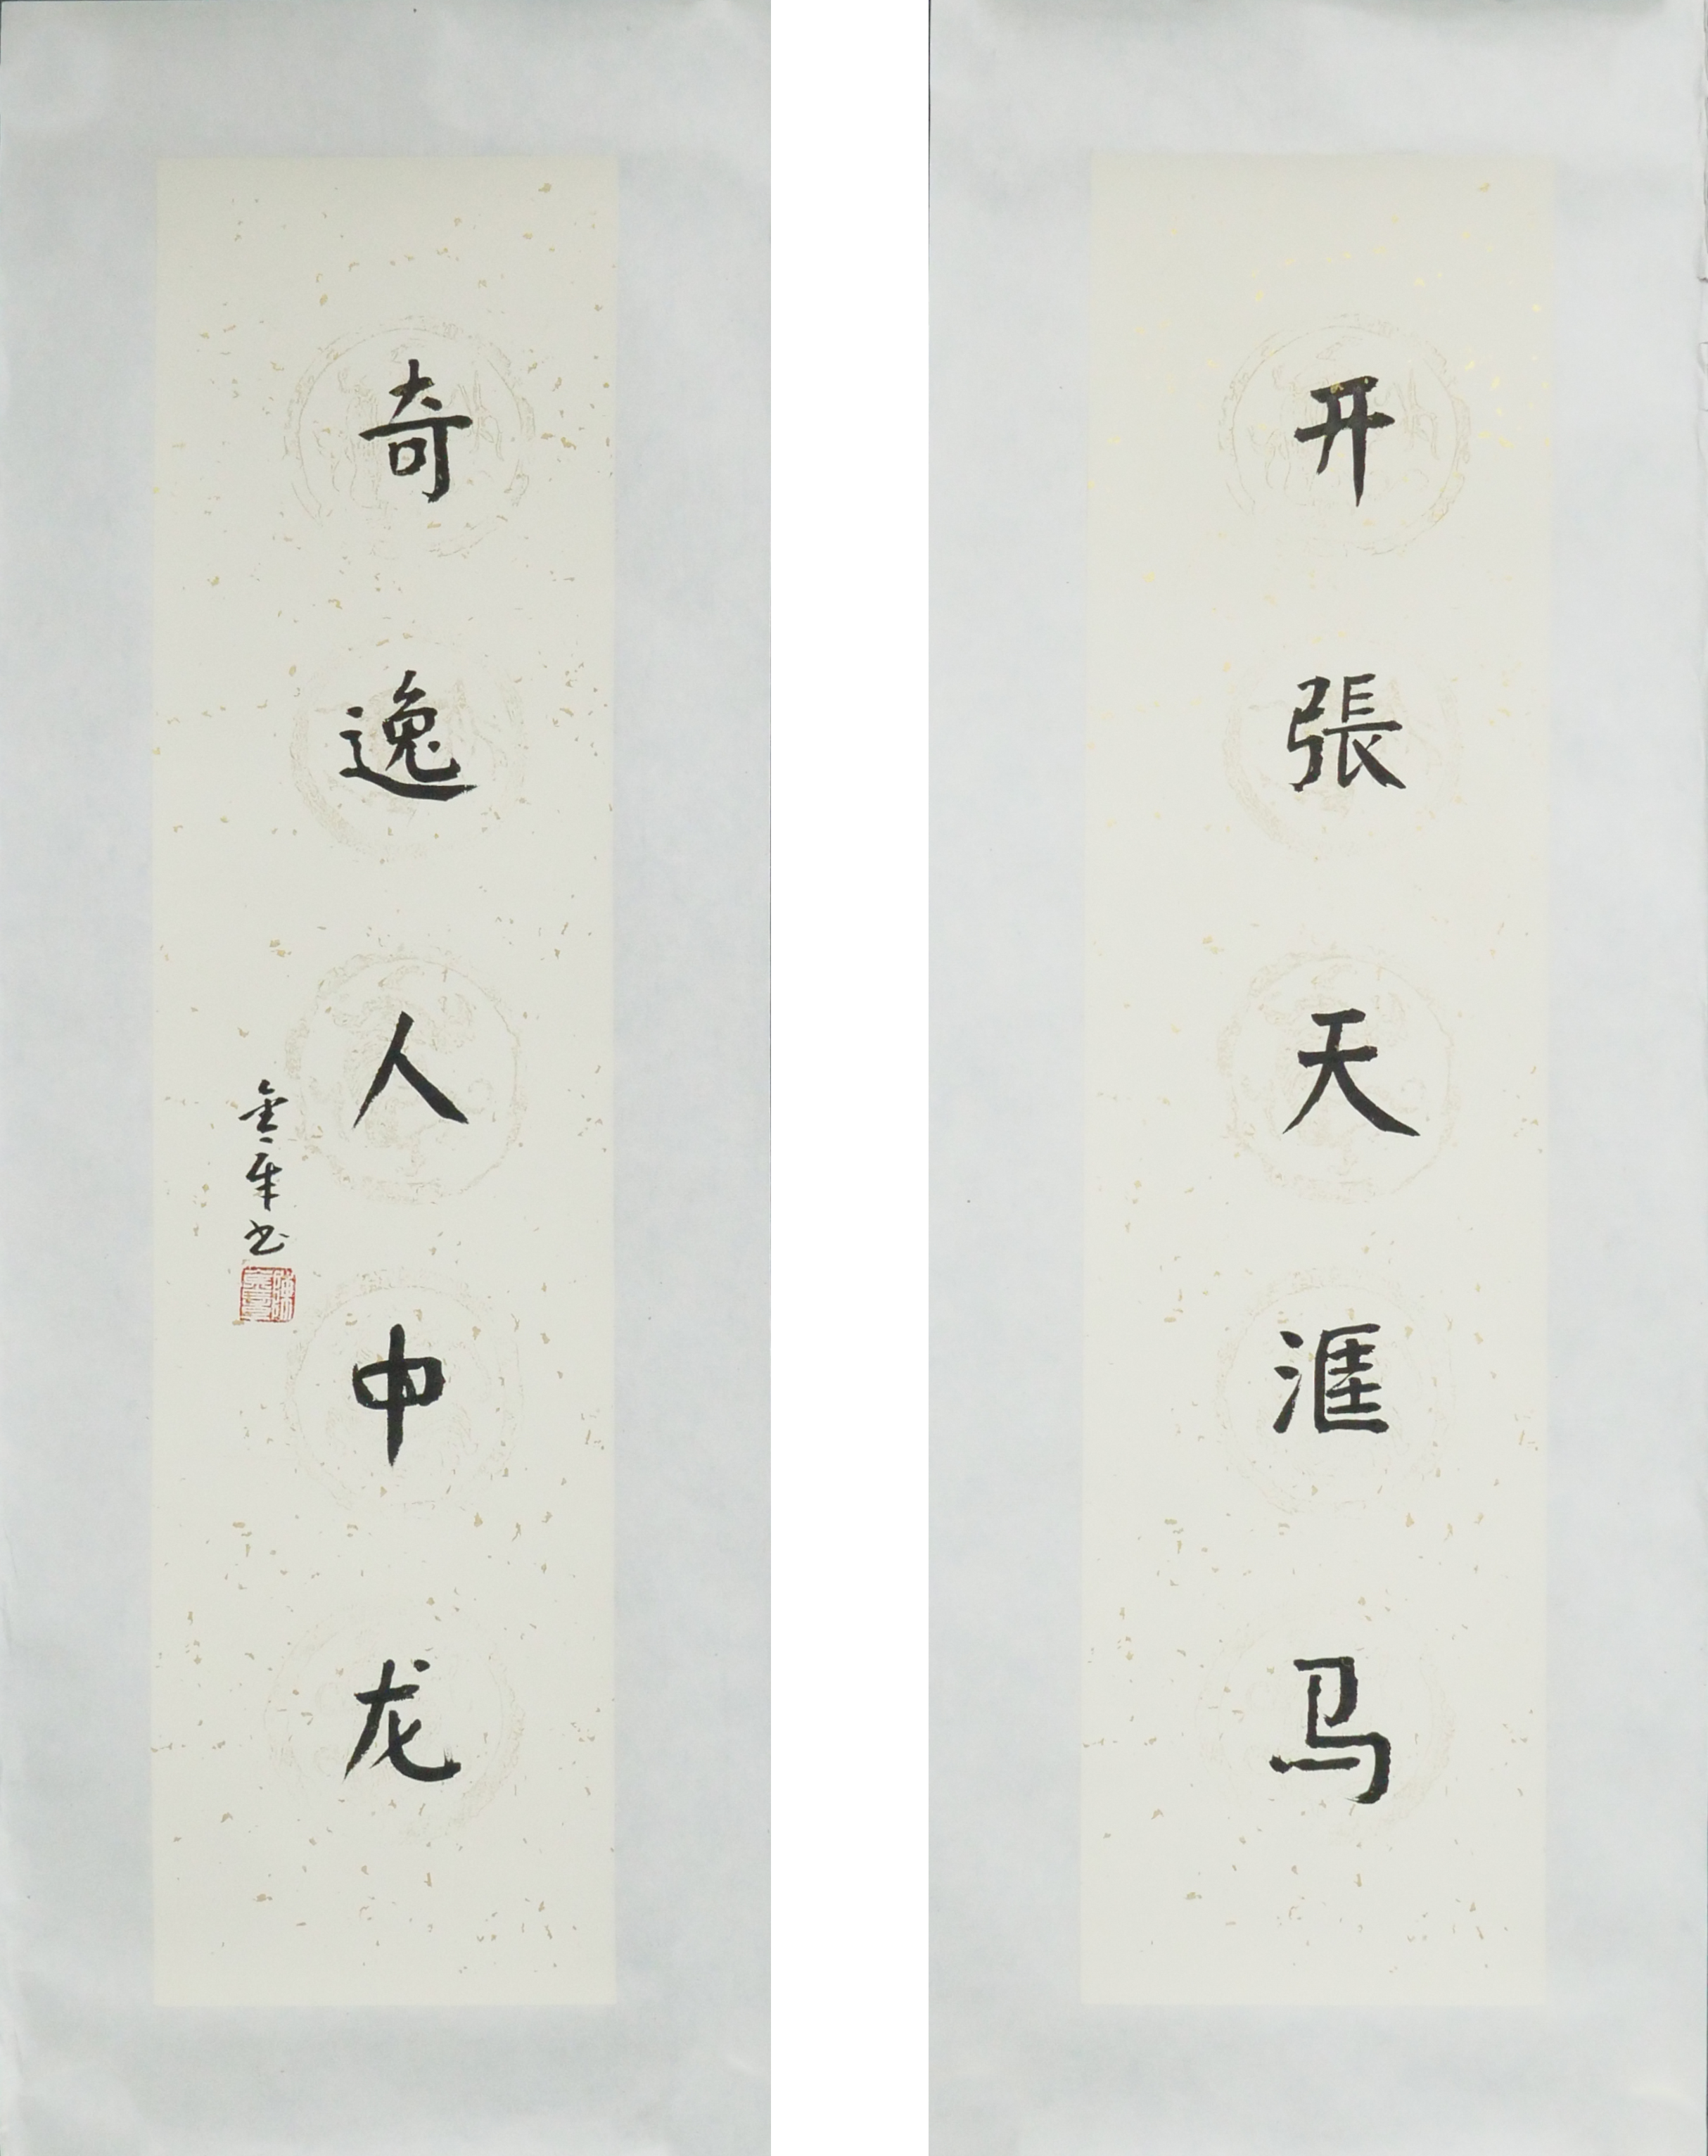 开張天涯马
奇逸人中龙
书